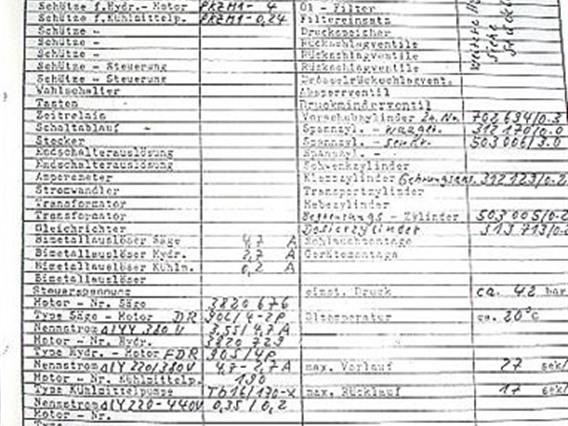 Schütze f.Hydr.- Motor PKZM1- 4 Öl - Filter
Schütze f.Kühlmittelp. PKZM1-0,24 Filtereinsatz
Schütze - Druckspeicher
Schütze - Rückschlagventile
Schütze - Rückschlagventile
Schütze - Steuerung Rückschlagventile
Schütze - Steuerung Drosselrückschlagvent.
Wahlschalter Absperrventil
Tasten Druckminderventil
Zeitrelais Vorschubzylinder 702 694/0.3
Schaltablauf - Spannzyl. - waagr. 312 170/0.0
Stecker Spannzyl. - senkr. 503 006/3.0
Endschalterauslösung Spannzyl. -
Endschalterauslösung Schwenkzylinder
Amperemeter Klemmzylinder 312 123/0.2
Stromwandler Transportzylinder
Transformator Hebezylinder
Transformator Begrenzungs - Zylinder 503 005/0.2
Gleichrichter Dosierzylinder 313 713/0.2
Bimetallauslöser Säge 4,7 A Schlauchmontage
Bimetallauslöser Hydr. 2,7 A Gerätemontage
Bimetallauslöser Kühlm. 0,2 A
Bimetallauslöser
Steuerspannung einst. Druck ca. 42 bar
Motor - Nr. Säge 3820 676
Type Säge - Motor DR 90L/4-2P Öltemperatur ca. 20°C
Nennstrom Δ/YY 380 V 3,55/4,7 A
Motor - Nr. Hydr. 3820 729
Type Hydr. - Motor FDR 90S/4P
Nennstrom Δ/Y 220/380V 4,7-2,7A max. Vorlauf 27 sek/
Motor - Nr. Kühlmittelp. 190
Type Kühlmittelpumpe TB16/170-X max. Rücklauf 17 sek/
Nennstrom Δ/Y 220-440V 0,35 / 0,2
Motor - Nr.